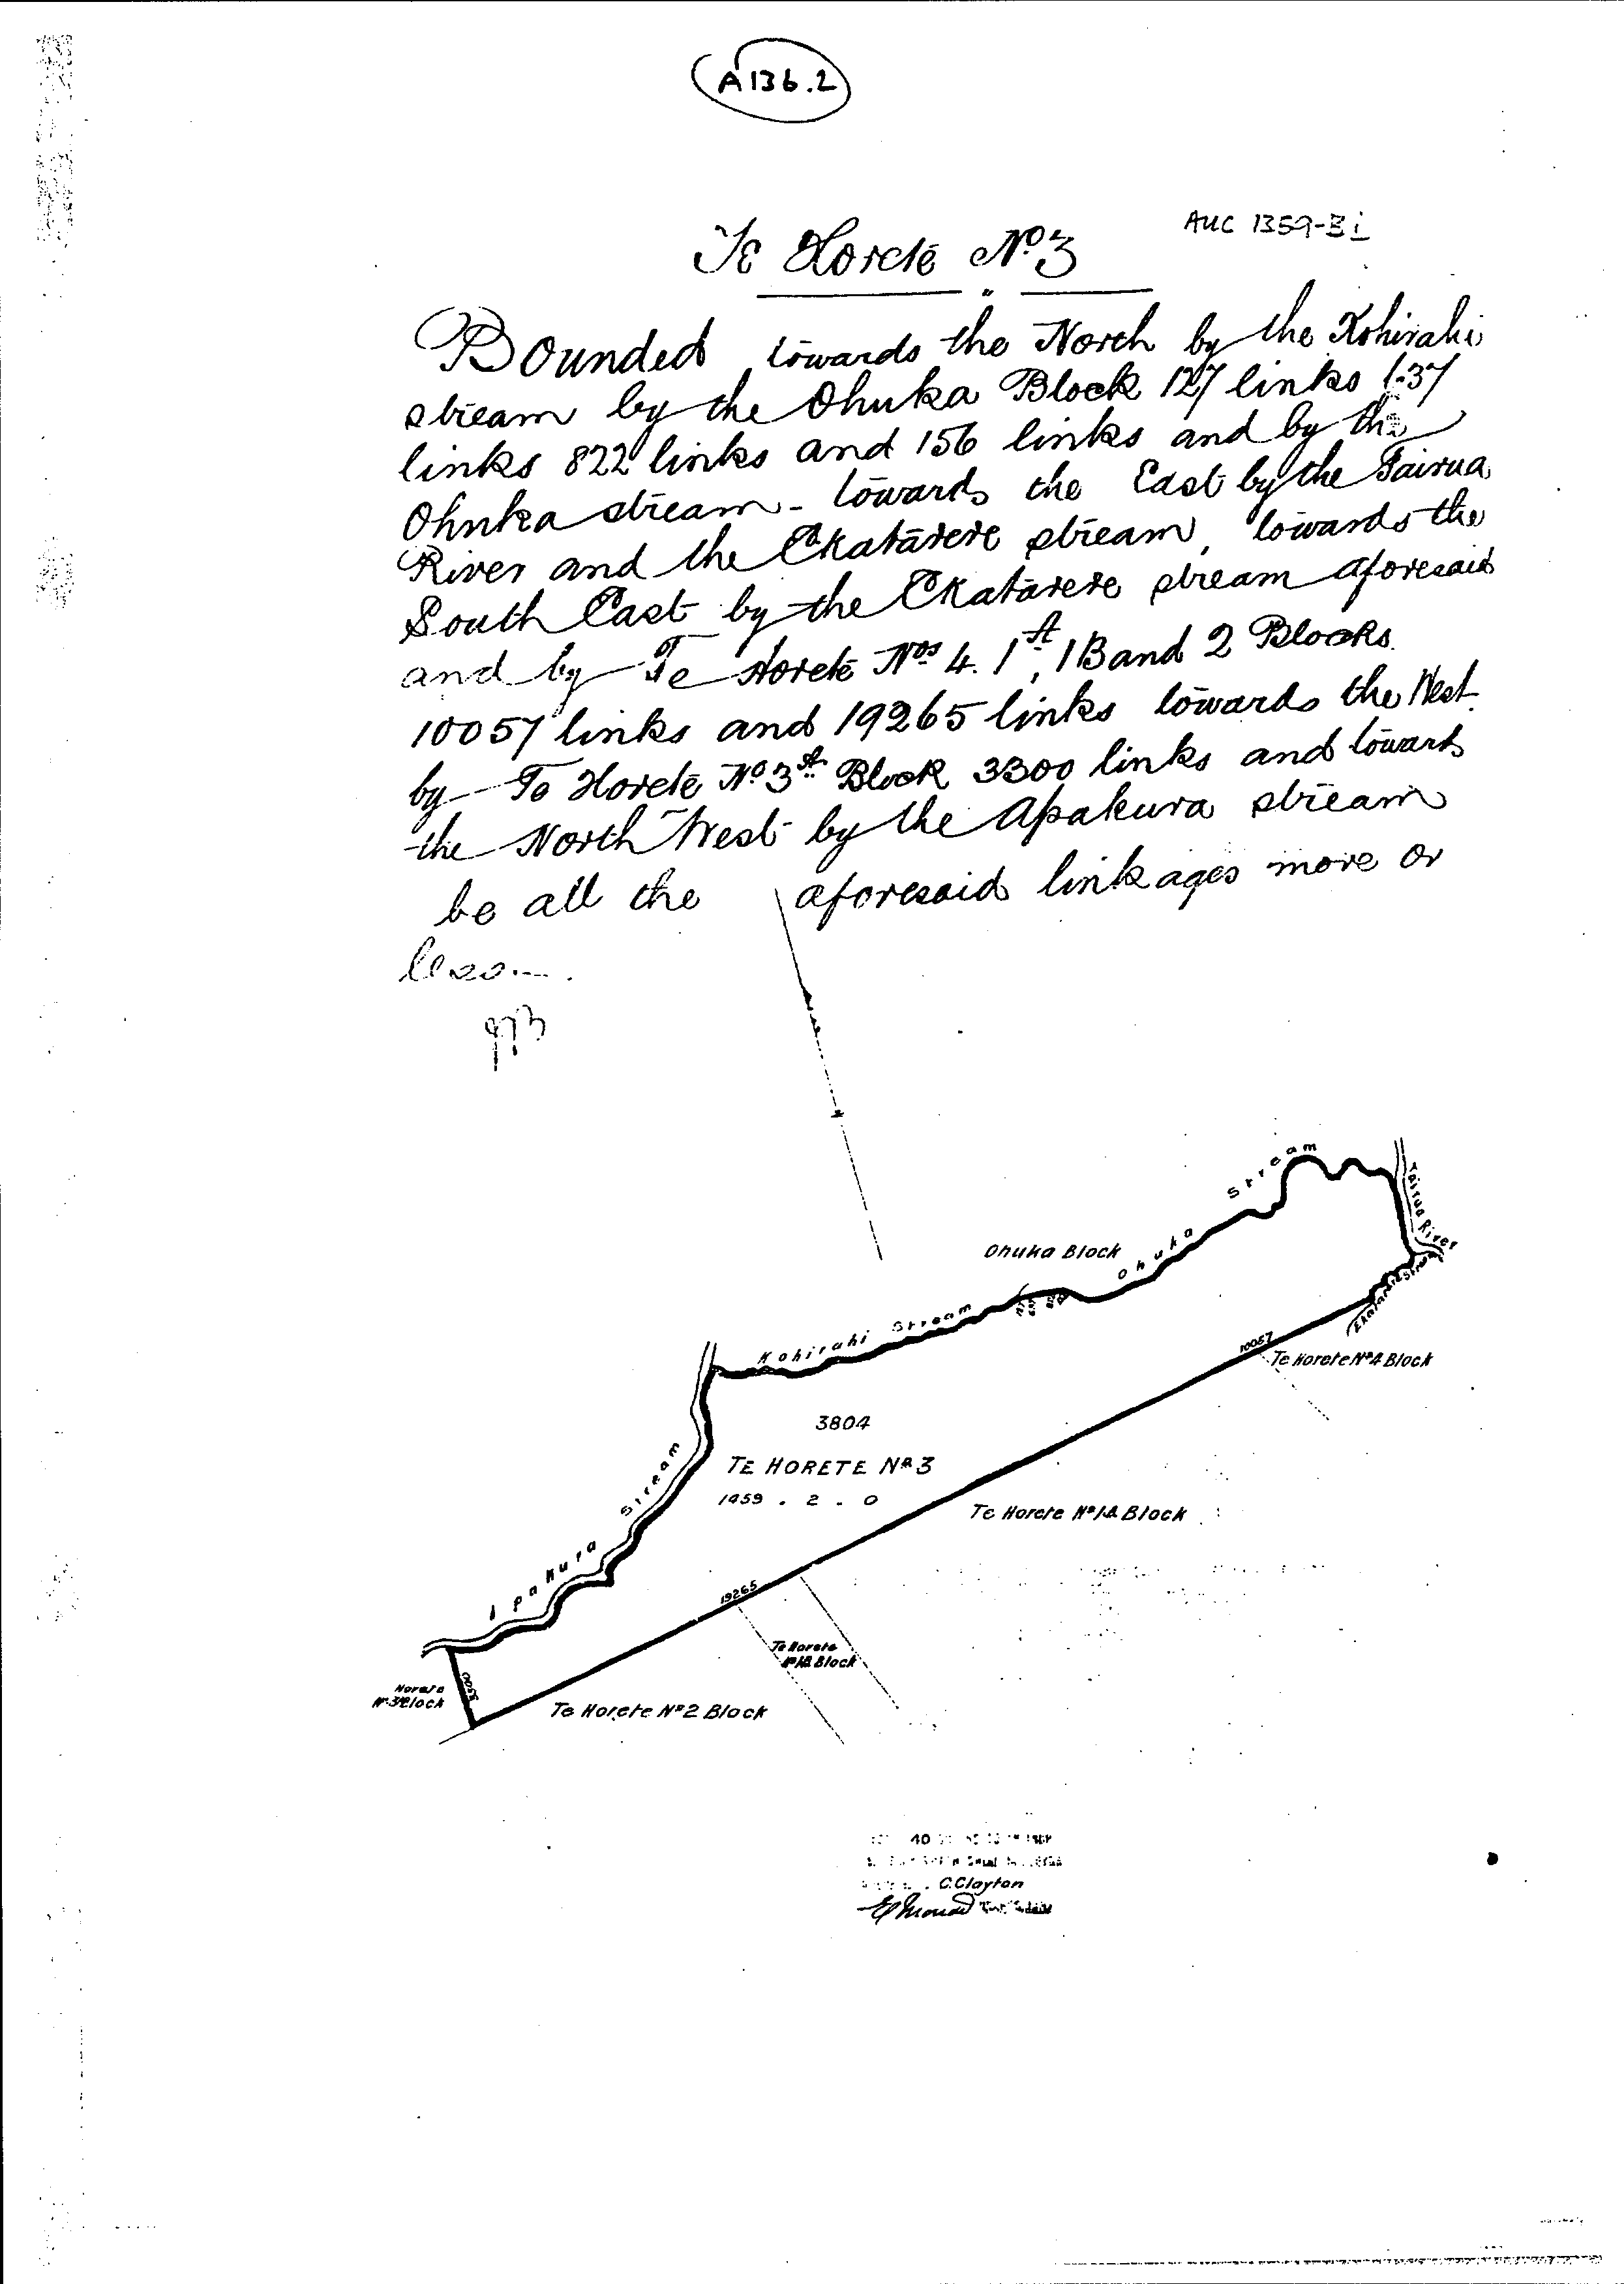 A136.2
AUC 1359-3i
Te Horete No 3
Bounded towards the North by the Kohirahi
stream by the Ohuka Block 127 links 137
links 822 links and 156 links and by the
Ohuka stream - towards the East by the Tairua
River and the Ekatarere stream, towards the
South East by the Ekatarere stream aforesaid
and by Te Horete Nos 4. 1A, 1B and 2 Blocks
10057 links and 19265 links towards the West
by Te Horete No 3A Block 3300 links and towards
the North West by the Apakura stream
be all the aforesaid linkages more or
less
Stream
Tairua River
Ohuka Block
Ohuka
Kohirahi Stream
10057
Te Horete No 4 Block
3804
TE HORETE No 3
1459 . 2 . 0
Stream
Te Horete No 1A Block
Apakura
19265
Te Horete
No 1B Block
3300
Horete
No 3A Block
Te Horete No 2 Block
40
C. Clayton